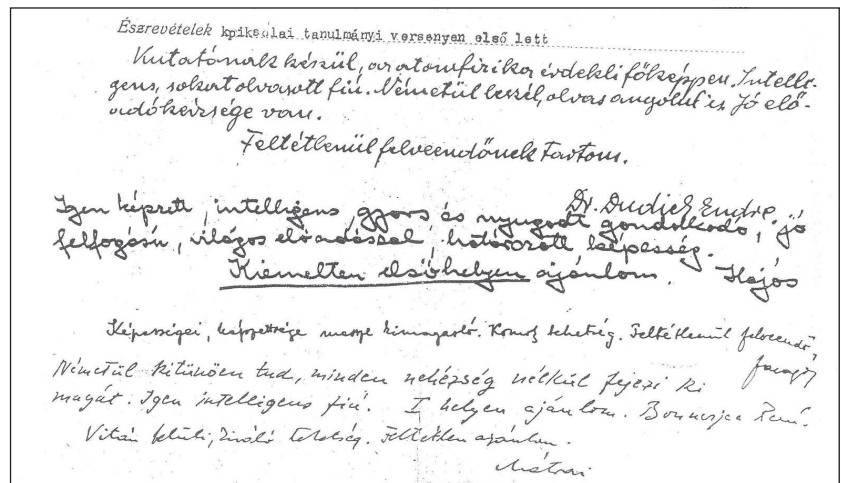 Észrevételek kpiksolai tanulmányi versenyen első lett
Kutatónak készül, az atomfizika érdekli főképpen. Intelli-
gens, sokat olvasott fiú. Németül beszél, olvas angolul is. Jó elő-
adókészsége van.
Feltétlenül felveendőnek tartom.
Dr. Dudich Endre
Igen képzett, intelligens, gyors és nyugodt gondolkodó, jó
felfogású, világos előadással, határozott képesség.
Kiemelten első helyen ajánlom. Hajós
Képességei, képzettsége messze kimagasló. Komoly tehetség. Feltétlenül felveendő,
Németül kitünően tud, minden nehézség nélkül fejezi ki
magát. Igen intelligens fiú. I helyen ajánlom.
Vitán felüli, kiváló tehetség. Feltétlen ajánlom.
Mátrai